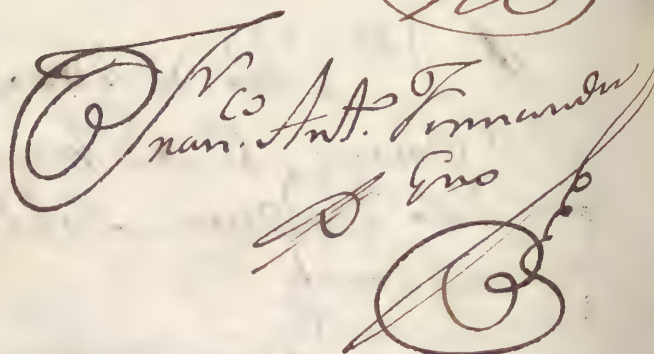 Fran.co Ant.o Fernandez